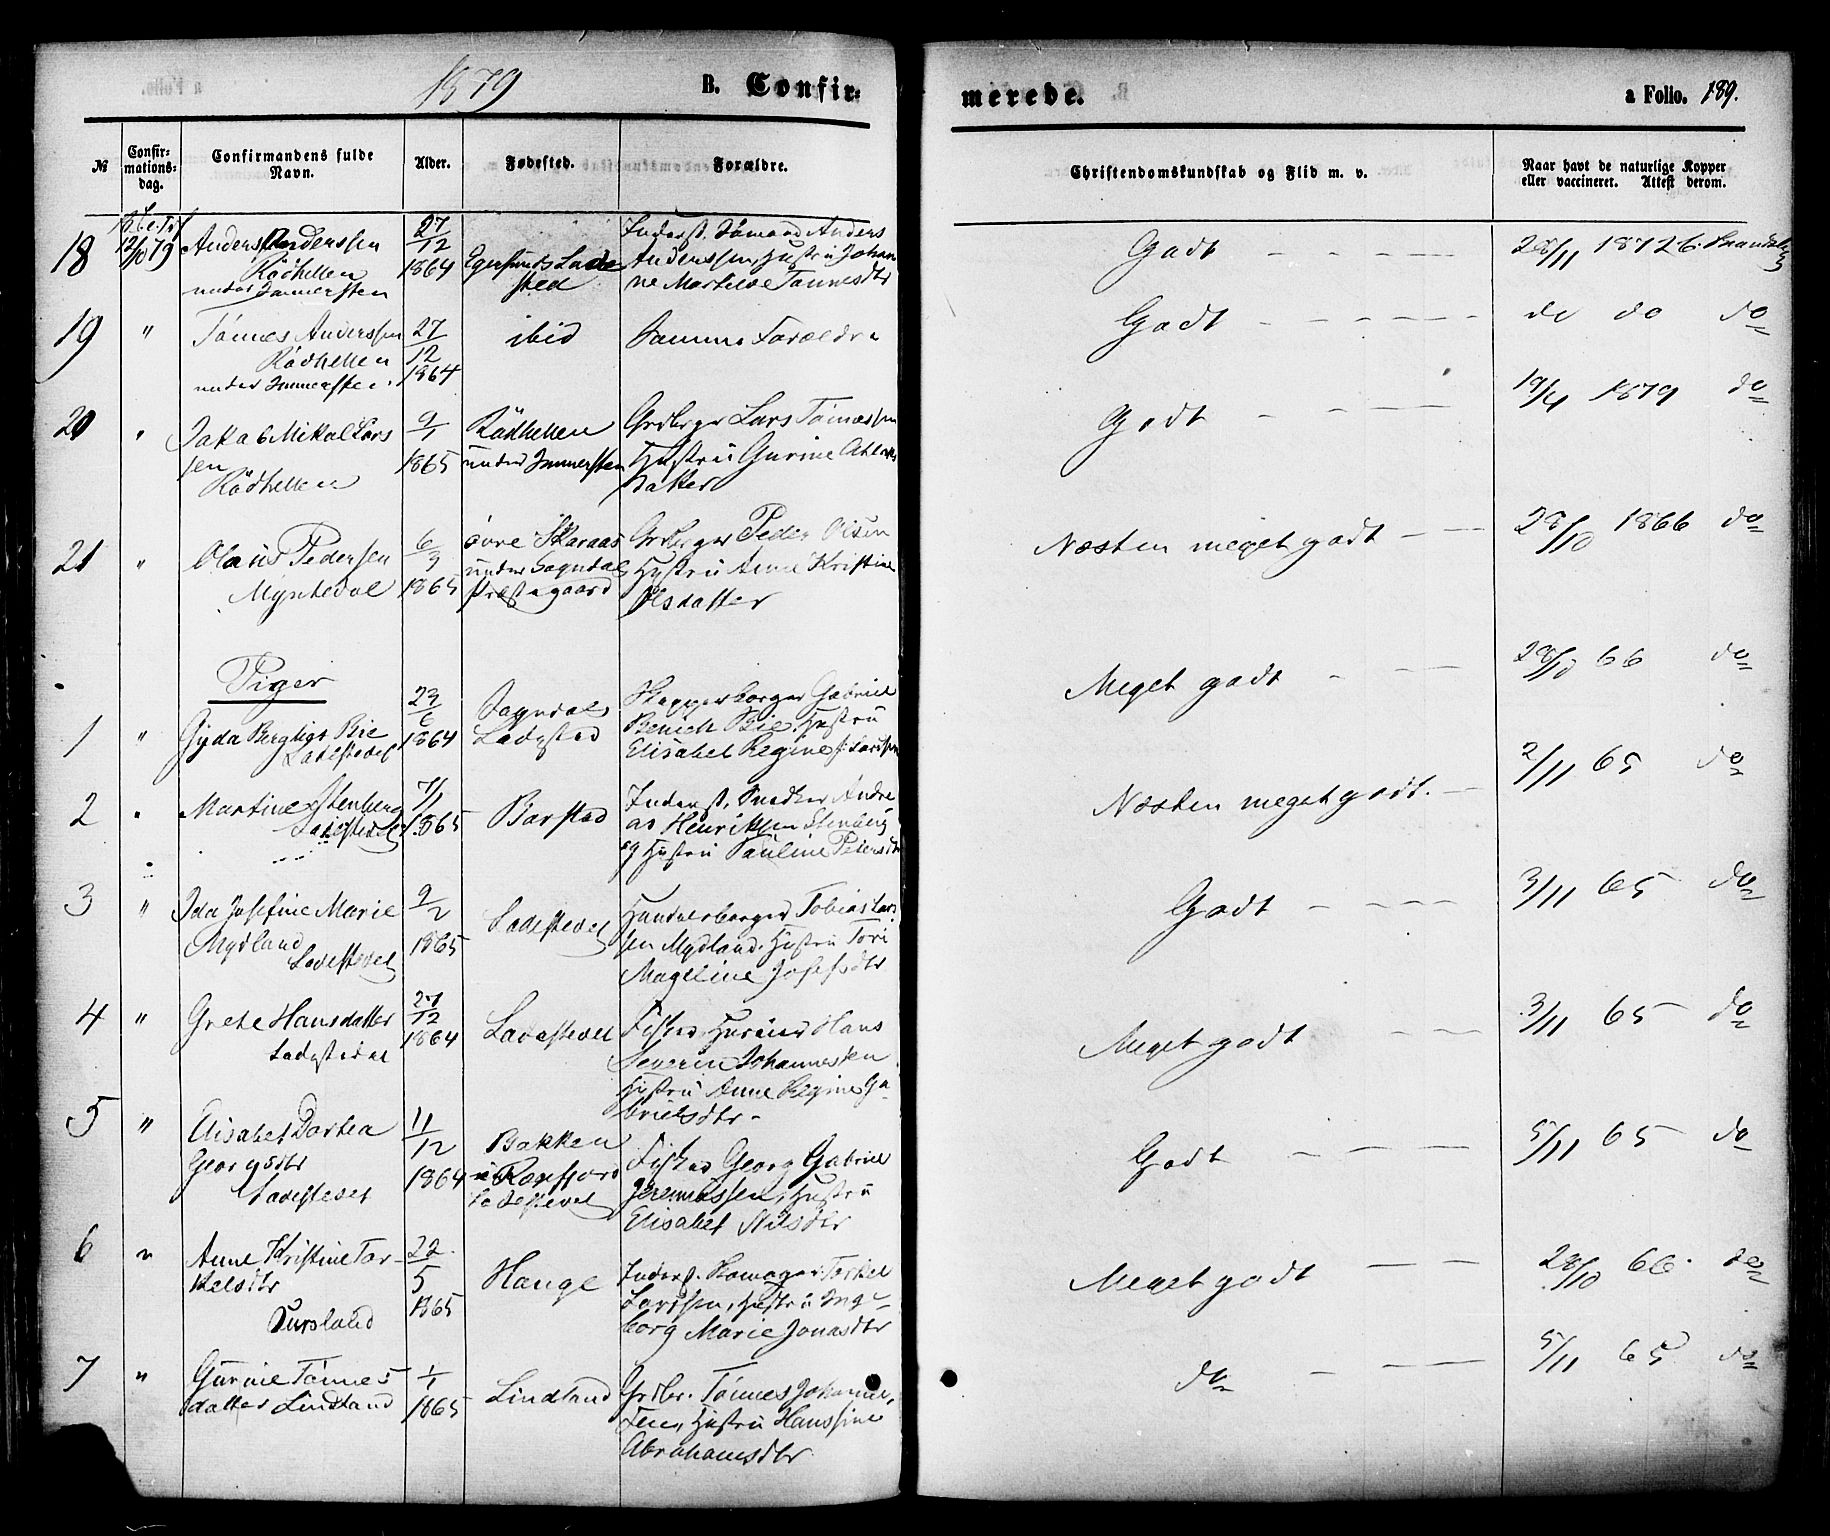 1879
B. Confir=
merede.
a Folio. 189.
№
Confir=
mations=
dag.
Confirmandens fulde
Navn.
Alder.
Fødested.
Forældre.
Christendomskundskab og Flid m. v.
Naar havt de naturlige Kopper
eller vaccineret. Attest derom.
18
12/10 79
Anders Anderssen
Rödhellen
under Immersten
27/12
1864
Egersunds Lade
sted
Inderst. Sömand Anders
Anderssen, Hustrü Johan
ne Martilde Tönnesdtr
Godt
28/11 1872
19
"
Tönnes Anderssen
Rödhellen
under Immersten
27/12
1864
ibid
Samme Forældre
Godt
do do do
20
"
Jakob Mikal Lars
sen
Rödhellen
9/1
1865
Rödhellen
under Immersten
Grdbrger Lars Tönnessen
Hustrü Gurine
datter
Godt
19/4 1879 do
21
"
Olaüs Pedersen
Myntedal
6/3
1865
övre Skaraas
under Sogndals
Præstegaard
Grdbrger Peder Olsen
Hustrü Anne Kristine
Olsdatter
Næsten meget godt
28/10 1866 do
Piger
1
"
Gyda Bergligt Bie
Ladestedet
23/6
1864
Sogndals
Ladested
Skipperborger Gabriel
Benich Bie, Hustrü
Elisabet Regine f. Larssen
Meget godt
28/10 66 do
2
"
Martine Stenberg
Ladestedet
7/1
1865
Barstad
Inderst. Snedker Andre
as Henriksen Stenberg
og Hustrü Pauline Petersdtr
Næsten meget godt.
2/11 65 do
3
"
Ida Josefine Marie
Mydland
Ladestedet
9/2
1865
Ladestedet
Handelsborger Tobias Lars
sen Mydland, Hustrü Tori
Mageline Josefsdtr
Godt
3/11 65 do
4
"
Grete Hansdatter
Ladestedet
27/12
1864
Ladestedet
Fisker Hans
Severin Johannessen
Hustrü Anne Regine Ga
brielsdtr
Meget godt
3/11 65 do
5
"
Elisabet Dortea
Georgsdtr
Ladestedet
11/12
1864
Bakken
i Rasfjord
Ladestedet
Fisker Georg Gabriel
Jeremiassen, Hustrü
Elisabet Nilsdtr
Godt
5/11 65 do
6
"
Anne Kristine Tor
kelsdtr
Dursland
22/5
1865
Hauge
Inderst. Skomager Torkel
Larssen, Hustrü Inge
borg Marie Jonasdtr
Meget godt
28/10 66 do
7
"
Gürine Tönnes
datter Lindland
1/1
1865
Lindland
Grdbr. Tönnes Johannes
sen, Hustrü Hanssine
Abrahamsdtr
do
5/11 65 do